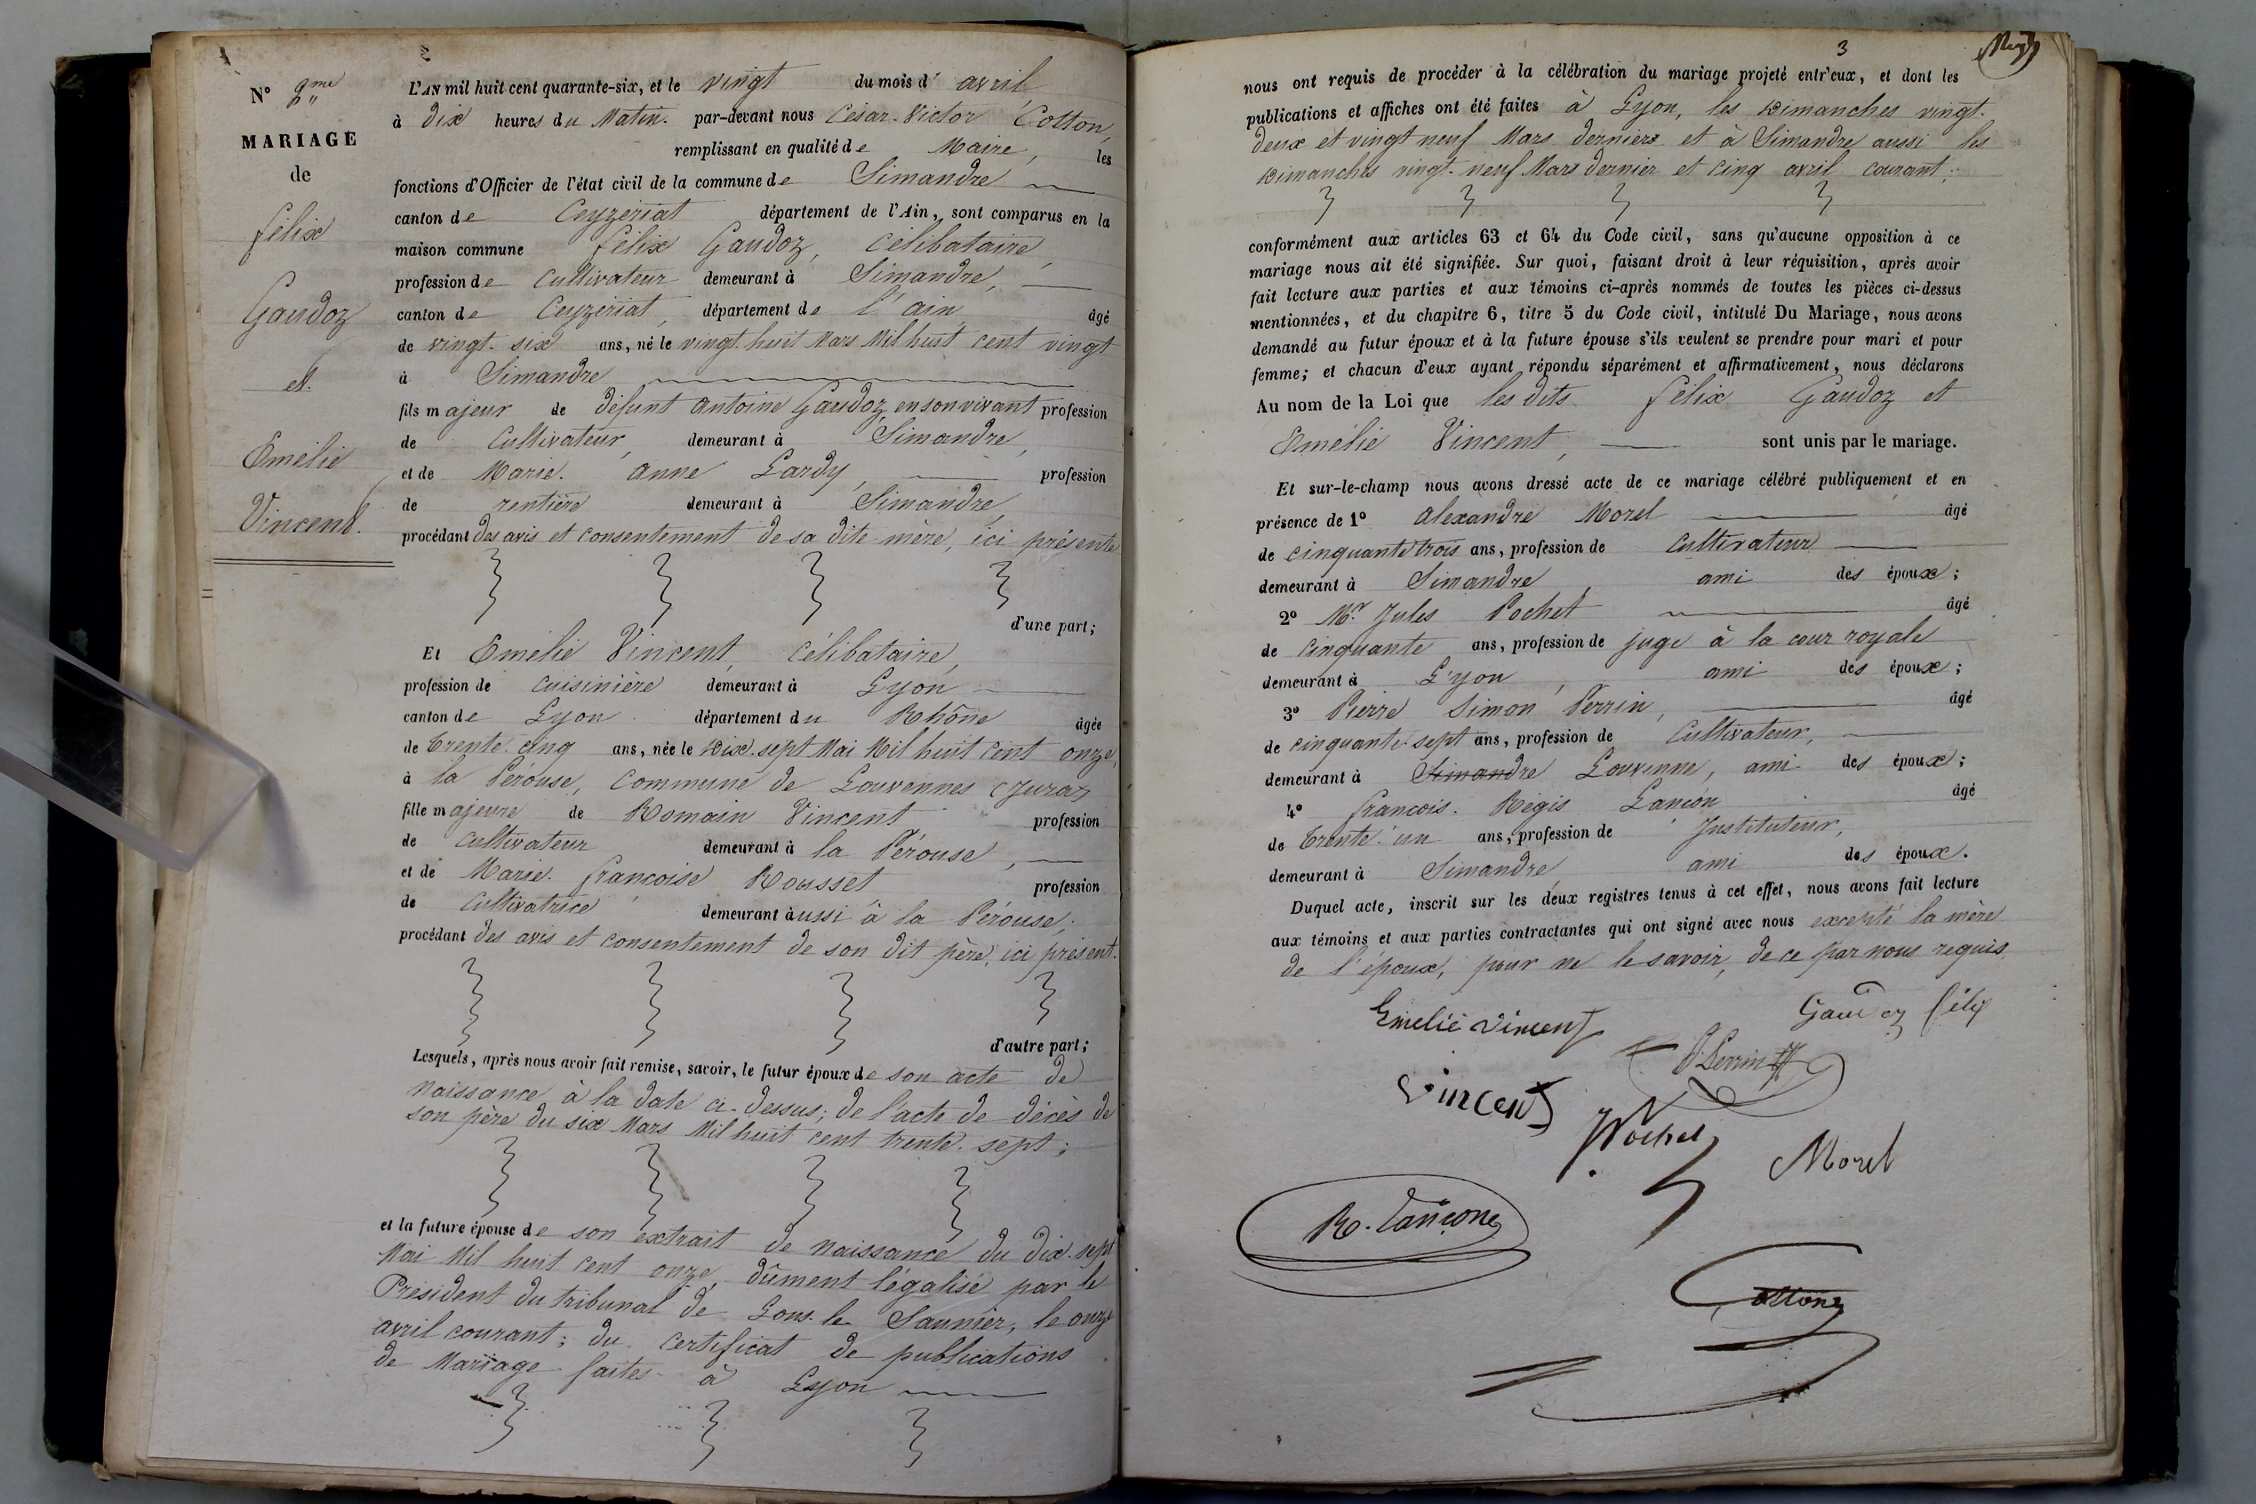 N°
MARIAGE
de
félix
Gaudoz
et
Emélie
Vincent.
2
L'AN mil huit cent quarante-six, et le vingt du mois d'avril
à dix heures du Matin. par-devant nous César-Victor Cotton,
remplissant en qualité de Maire, les
fonctions d'Officier de l'état civil de la commune de Simandre
canton de Ceyzeriat département de l'Ain, sont comparus en la
maison commune félix Gaudoz, célibataire,
profession de Cultivateur demeurant à Simandre,
canton de Ceyzeriat, département de l'ain âgé
de vingt-six ans, né le vingt-huit Mars Mil huit cent vingt
à Simandre
fils majeur de défunt antoine Gaudoz, en son vivant profession
de Cultivateur, demeurant à Simandre,
et de Marie-anne Lardy, profession
de rentière demeurant à Simandre,
procédant des avis et consentement de sa dite mère, ici présente
d'une part;
Et Emélie Vincent, célibataire,
profession de cuisinière demeurant à Lyon
canton de Lyon département du Rhône âgée
de trente-cinq ans, née le dix-sept Mai Mil huit cent onze,
à la Pérouse, commune de Louvennes (Jura)
fille majeure de Romain Vincent profession
de cultivateur demeurant à la Pérouse,
et de Marie-françoise Rousset profession
de cultivatrice demeurant aussi à la Pérouse;
procédant des avis et consentement de son dit père, ici présent.
d'autre part;
Lesquels, après nous avoir fait remise, savoir, le futur époux de son acte de
naissance à la date ci-dessus; de l'acte de décès de
son père du six Mars Mil huit cent trente-sept;
et la future épouse de son extrait de naissance du dix-sept
Mai Mil huit cent onze, dûment légalisé par le
Président du tribunal de Lons-le Saunier, le onze
avril courant; du certificat de publications
de Mariage faites à Lyon
3
nous ont requis de procéder à la célébration du mariage projeté entr'eux, et dont les
publications et affiches ont été faites à Lyon, les dimanches vingt-
deux et vingt neuf Mars derniers et à Simandre aussi les
dimanches vingt-neuf Mars dernier et cinq avril courant;
conformément aux articles 63 et 64 du Code civil, sans qu'aucune opposition à ce
mariage nous ait été signifiée. Sur quoi, faisant droit à leur réquisition, après avoir
fait lecture aux parties et aux témoins ci-après nommés de toutes les pièces ci-dessus
mentionnées, et du chapitre 6, titre 5 du Code civil, intitulé Du Mariage, nous avons
demandé au futur époux et à la future épouse s'ils veulent se prendre pour mari et pour
femme; et chacun d'eux ayant répondu séparément et affirmativement, nous déclarons
Au nom de la Loi que les dits félix Gaudoz et
Emélie Vincent, sont unis par le mariage.
Et sur-le-champ nous avons dressé acte de ce mariage célébré publiquement et en
présence de 1° alexandre Morel âgé
de cinquante trois ans, profession de Cultivateur
demeurant à Simandre, ami des époux;
2° Mr. Jules Pochet âgé
de cinquante ans, profession de juge à la cour royale
demeurant à Lyon, ami des époux;
3° Pierre Simon Perrin, âgé
de cinquante-sept ans, profession de Cultivateur,
demeurant à Simandre Louvenne, ami des époux;
4° francois-Régis Lançon âgé
de trente-un ans, profession de Instituteur,
demeurant à Simandre, ami des époux.
Duquel acte, inscrit sur les deux registres tenus à cet effet, nous avons fait lecture
aux témoins et aux parties contractantes qui ont signé avec nous excepté la mère
de l'époux, pour ne le savoir, de ce par nous requis
Emelie vincent
Gaudoz félix
P. Perrin
vincent
Pochet
Morel
R. Lançon
Cotton